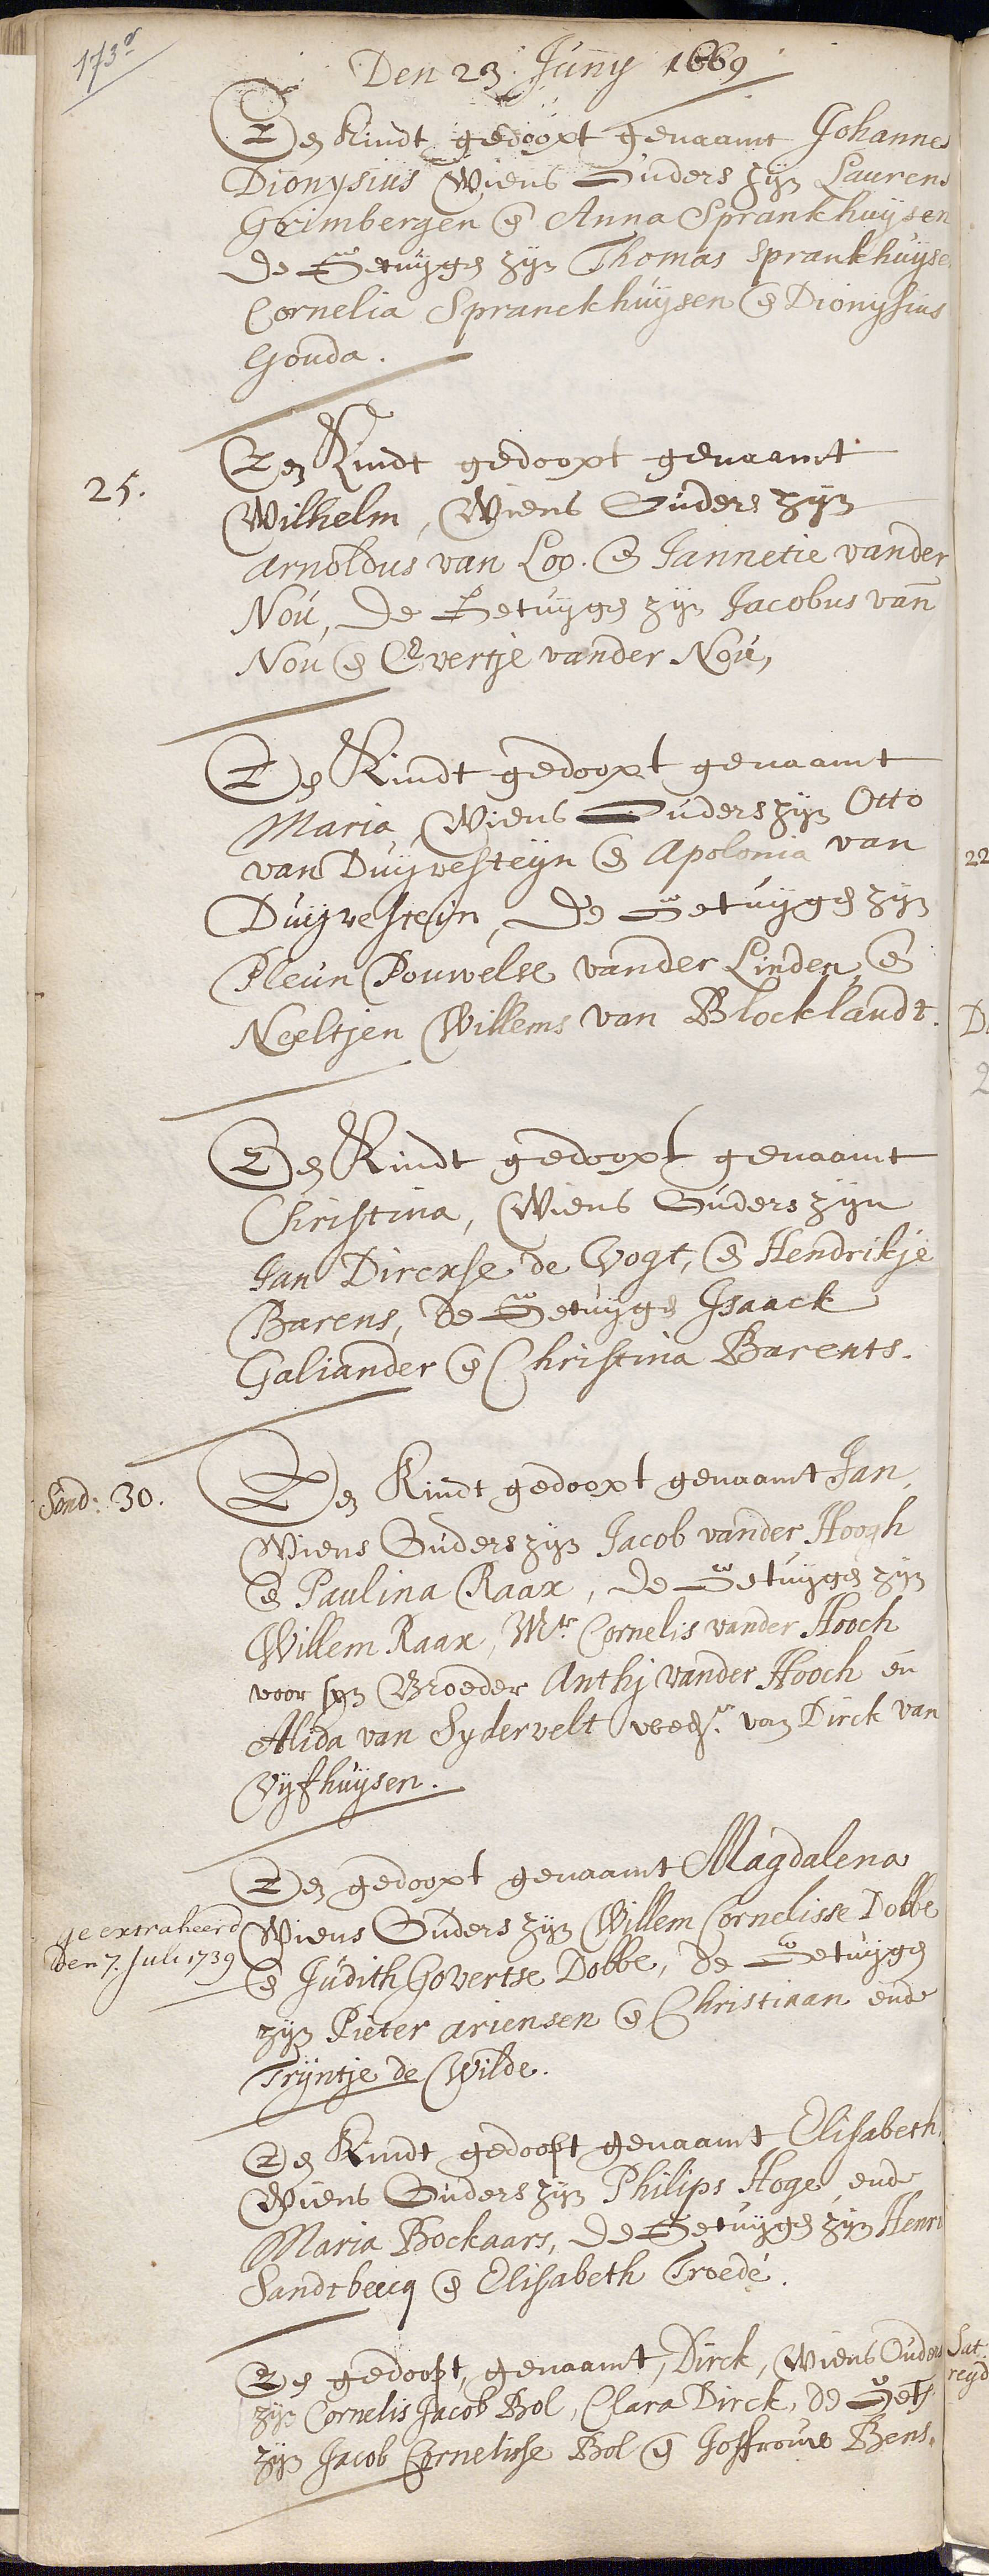 173r
Den 23. Juny 1669
Een Kindt gedoopt genaamt Johannes
Dionysius Wiens Ouders zyn Laurens
Grimbergen en Anna Sprankhuysen
de Getuyges zyn Thomas Sprankhuyse
Cornelia Spranckhuysen en Dionysius
Gouda.
25.
Een Kindt gedoopt genaamt
Wilhelm, Wiens Ouders zyn
Arnoldus van Loo. en Jannetie vander
Nou, de Getuyges zyn Jacobus van
Nou en Evertje vander Nou,
Een Kindt gedoopt genaamt
Maria, Wiens Ouders zyn Otto
van Duyvesteyn en Apolonia van
Duyvestein, de Getuyges zyn
Pleun Pouwelse vander Linden en
Neeltjen Willems van Blocklandt.
Een Kindt gedoopt genaamt
Christina, Wiens Ouders zyn
Jan Dircxse de Vogt, en Hendrikje
Barens, de Getuyges Isaack
Galiander en Christina Barents.
Sond: 30.
Een Kindt gedoopt genaamt Jan,
Wiens Ouders zyn Jacob vander Hoogh
en Paulina Raax, de Getuyges zyn
Willem Raax, Mr Cornelis vander Hooch
voor syn Broeder Anthj vander Hooch en
Alida van Sydervelt weds. van Dirck van
Vyfhuysen.
Een gedoopt genaamt Magdalena
geextraheerd
den 7. Juli 1739
Wiens Ouders zyn Willem Cornelisse Dobbe
en Judith Govertse Dobbe, de Getuyges
zyn Pieter Ariensen en Christiaan ende
Tryntje de Wilde.
Een Kindt gedoopt genaamt Elisabeth
Wiens Ouders zyn Philips Hoge ende
Maria Bockaars, de Getuyges zyn Henri
Sandtbeecq en Elisabeth Troedé.
Een gedoopt, genaamt, Dirck, Wiens Ouders
zyn Cornelis Jacob Bol, Clara Dirck, de Get
zyn Jacob Cornelisse Bol en Joffrouw Bens.
22
D
2
Sat
reyd